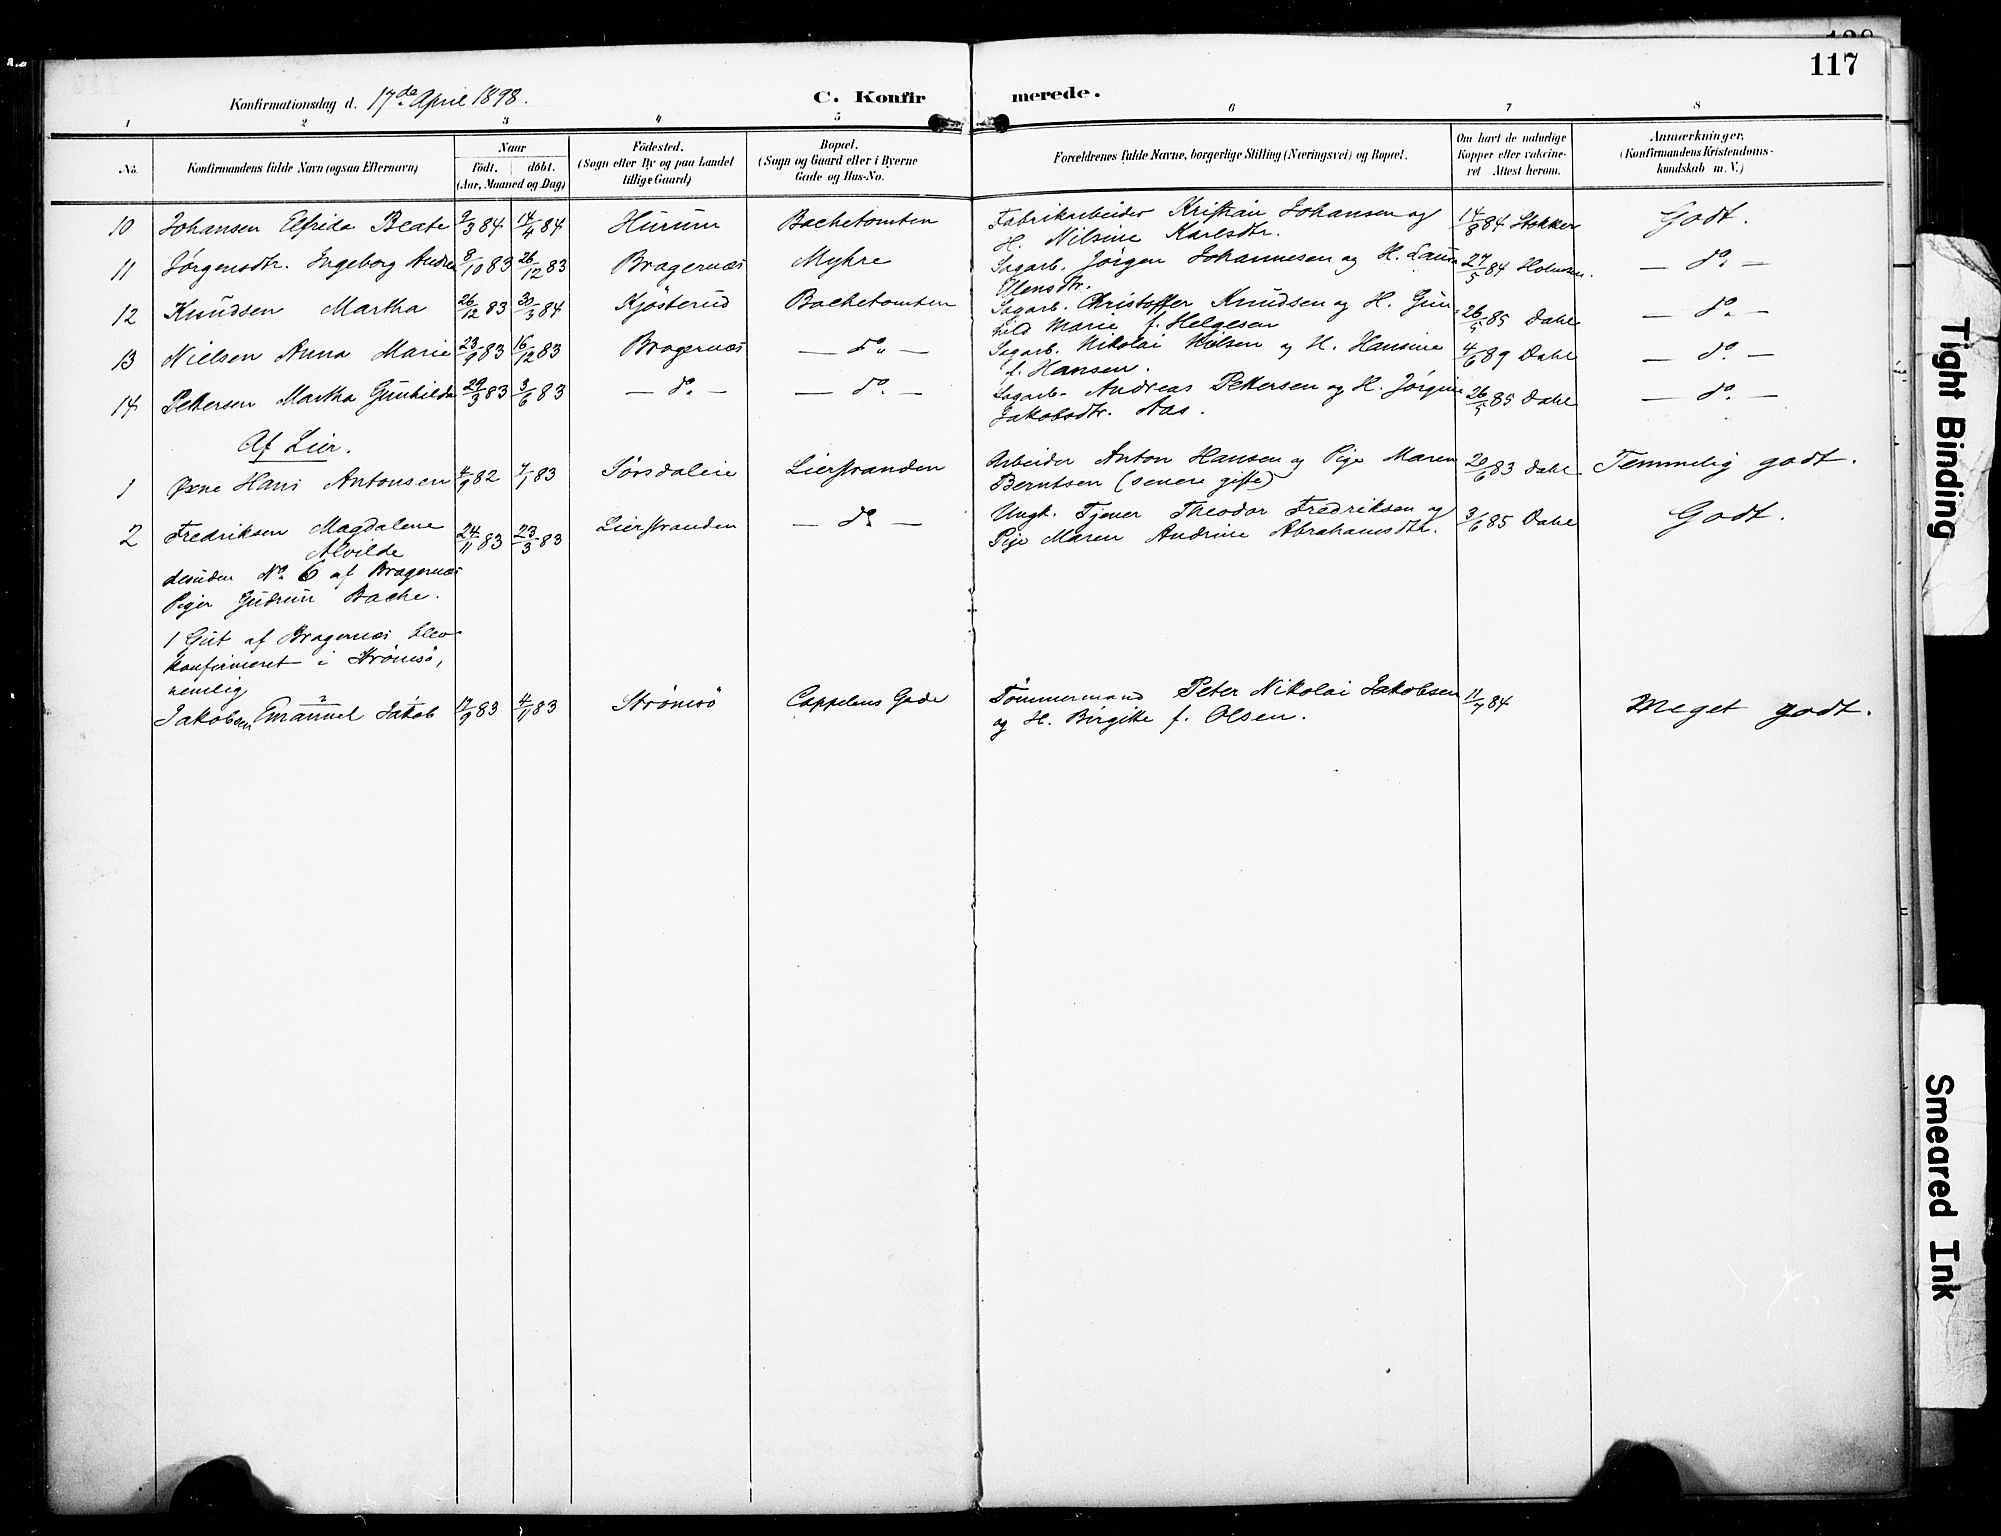 117
Konfirmationsdag d. 17de April 1898. C. Konfirmerede.
1 2 3 4 5 6 7 8
No. Konfirmandens fulde Navn (ogsaa Efternavn) Naar Född. döbt. (Aar, Maaned og Dag) Födested. (Sogn eller By og paa Landet tillige Gaard) Bopæl. (Sogn og Gaard eller i Byerne Gade og Hus-No. Forældrenes fulde Navne, borgerlige Stilling (Næringsvei) og Bopæl. Om havt de naturlige Kopper eller vakcineret Attest herom. Anmærkninger. (Konfirmandens Kristendomskundskab m. V.)
10 Johansen Elfrida Beate 9/3 84 14/4 84 Hurum Bachetomten Fabrikarbeider Kristian Johansen og 14/8 84 Stokker Godt.
H. Nilsine Karlsdtr.
11 Jørgensdtr. Ingeborg Andrea 8/10 83 26/12 83 Bragernæs Myhre Sagarb. Jørgen Johannesen og H. Laura 27/5 84 Holmsen. — do —
Olensdtr.
12 Knudsen Martha 26/12 83 30/3 84 Kjøsterud Bachetomten Sagarb. Christoffer Knudsen og H. Gun- 26/5 85 Dahl — do —
hild Marie f. Helgesen
13 Nielsen Anna Marie 23/9 83 16/12 83 Bragernæs — do — Sagarb. Nikolai Nielsen og H. Hansine 4/6 89 Dahl — do —
f. Hansen.
14 Pettersen Martha Gunhilda 29/3 83 3/6 83 — do — — do — Sagarb. Andreas Pettersen og H. Jørgine 26/5 85 Dahl — do —
Jakobsdtr. Aas.
Af Lier.
1 Øxne Hans Antonsen 4/9 82 7/1 83 Sørsdalen Lierstranden Arbeider Anton Hansen og Pige Maren 20/6 83 Dahl Temmelig godt.
Berntsen (senere gifte)
2 Fredriksen Magdalene 24/11 83 23/3 83 Lierstranden — do — Ungk. Tjener Theodor Fredriksen og 3/6 85 Dahl Godt.
Alvilde Pige Maren Andrine Abrahamsdtr.
desuden No 6 af Bragernæs
Piger Gudrun Bache.
1 Gut af Bragernæs blev
konfirmeret i Strømsø,
nemlig
Jakobsen Emanuel Jakob 17/9 83 4/11 83 Strömsö Cappelens Gade Tømmermand Peter Nikolai Jakobsen 11/7 84 Meget godt.
og H. Birgitte f. Olsen.
Tight Binding
Smeared Ink